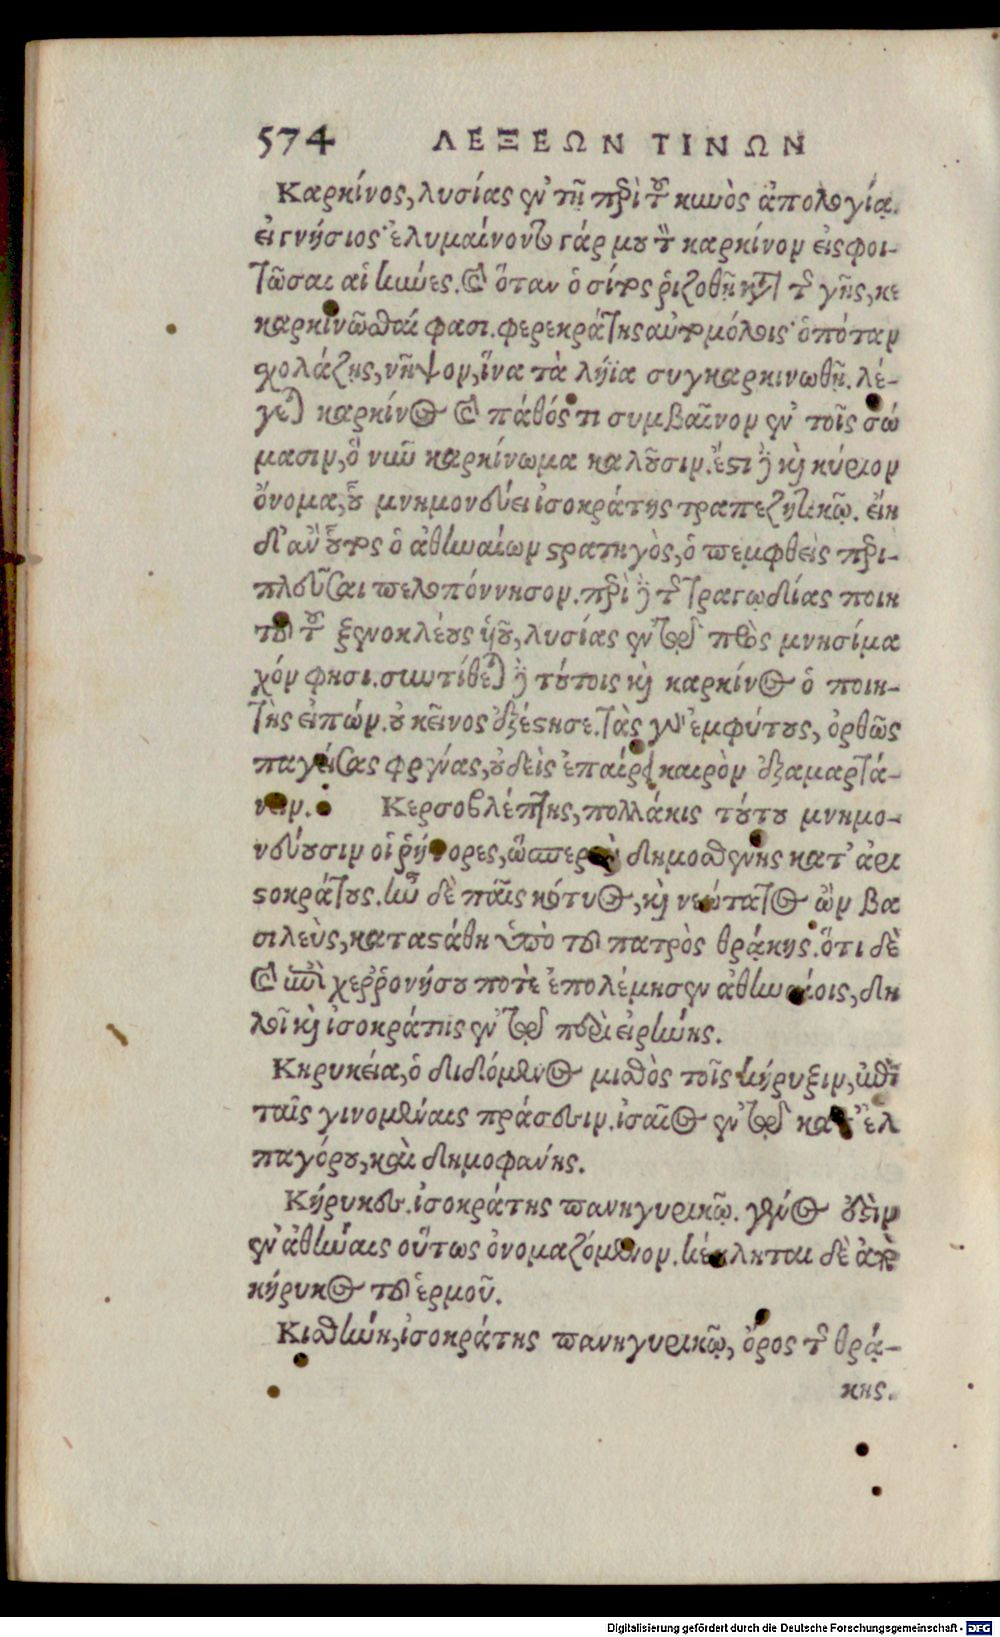 574 ΛΕΞΕΩΝ ΤΙΝΩΝ
Καρκίνος, λυσίας ἐν τῇ περὶ τοῦ κυνὸς ἀπολογίᾳ.
εἰ γνήσιος· ἐλυμαίνοντο γάρ μου τὸν καρκίνον εἰς φοι-
τῶσαι αἱ κύνες. καὶ ὅταν ὁ σίτος ῥιζοθῇ κατὰ τῆς γῆς, κε
καρκινῶσθαί φασι. φερεκράτης αὐτομόλοις· ὁπόταν
χολάζῃς, νῆψον, ἵνα τὰ λήϊα συγκαρκινωθῇ. λέ-
γεται καρκίνος καὶ πάθός τι συμβαῖνον ἐν τοῖς σώ
μασιν, ὃ νῦν καρκίνωμα καλοῦσιν. ἔστι δὲ καὶ κύριον
ὄνομα, οὗ μνημονεύει ἰσοκράτης τραπεζητικῷ. εἴη
δ' ἂν οὗτος ὁ ἀθηναίων στρατηγὸς, ὁ πεμφθεὶς περι-
πλεῦσαι πελοπόννησον. περὶ δὲ τῆς τραγῳδίας ποιη
τοῦ τοῦ ξενοκλέους υἱοῦ, λυσίας ἐν τῷ πρὸς μνησίμα
χόν φησι. συντίθεται δὲ τούτοις καὶ καρκίνος ὁ ποιη-
τὴς εἰπών. οὐ κεῖνος ἐξέστησε. τὰς γὰρ ἐμφύτους, ὀρθῶς
παγείσας φρένας, οὐδεὶς ἐπαίρει καιρὸν ἐξαμαρτά-
νειν. Κερσοβλέπτης, πολλάκις τούτου μνημο-
νεύουσιν οἱ ῥήτορες, ὥσπερ καὶ δημοσθένης κατ' ἀρι
στοκράτους. ἦν δὲ παῖς κότυος, καὶ νεώτατος ὢν βα
σιλεὺς, κατεστάθη ὑπὸ τοῦ πατρὸς θρᾴκης. ὅτι δὲ
καὶ ἐπὶ χερρονήσου ποτὲ ἐπολέμησεν ἀθηναίοις, δη
λοῖ καὶ ἰσοκράτης ἐν τῷ περὶ εἰρήνης.
Κηρυκεία, ὁ διδόμενος μισθὸς τοῖς κήρυξιν, ἐπὶ
ταῖς γινομέναις πράσεσιν. ἰσαῖος ἐν τῷ κατ' ἐλ
παγόρου, καὶ δημοφάνης.
Κήρυκες. ἰσοκράτης πανηγυρικῷ. γένος ἐστὶν
ἐν ἀθήναις οὕτως ὀνομαζόμενον. κέκληται δὲ ἀπὸ
κήρυκος τοῦ ἑρμοῦ.
Κισθήνη, ἰσοκράτης πανηγυρικῷ, ὄρος τῆς θρᾴ-
κης.
Digitalisierung gefördert durch die Deutsche Forschungsgemeinschaft - DFG